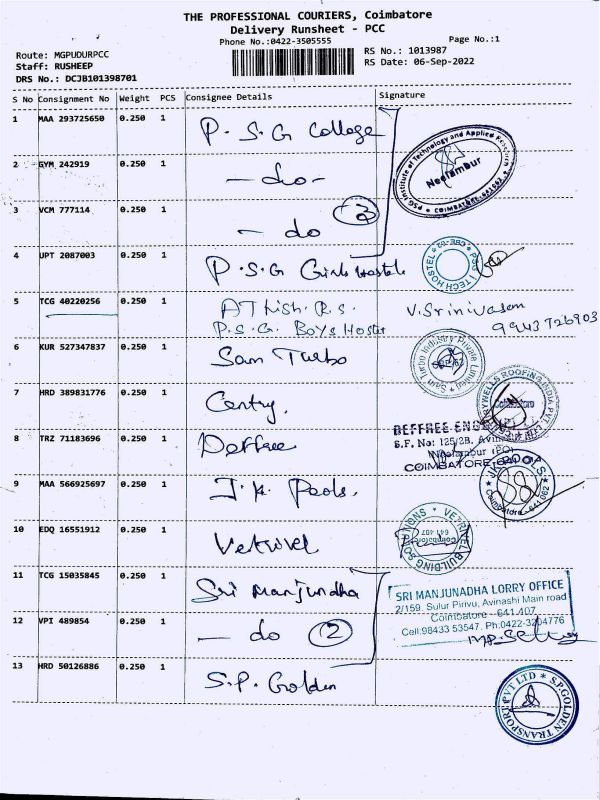 THE PROFESSIONAL COURIERS, Coimbatore
Delivery Runsheet - PCC
Phone No.:0422-3505555
Page No.:1
Route: MGPUDURPCC
RS No.: 1013987
Staff: RUSHEEP
RS Date: 06-Sep-2022
DRS No.: DCJB101398701
S No Consignment No Weight PCS Consignee Details Signature
1 MAA 293725650 0.250 1 P.S.G College
PSG Institute of Technology and Applied Research
Neelambur
COIMBATORE-641062
2 GYM 242919 0.250 1 - do -
3 VCM 777114 0.250 1 - do 3
4 UPT 2087003 0.250 1 P.S.G Girls Hostel
PSG I TECH HOSTEL
5 TCG 40220256 0.250 1 AThish.R.S. V.Srinivasan
P.S.G. Boys Hostel 9943726903
6 KUR 527347837 0.250 1 Sam Turbo
Sam Turbo Industry Private Limited
7 HRD 389831776 0.250 1 Centry.
ROOFING INDIA PVT. LTD
Coimbatore
8 TRZ 71183696 0.250 1 Deffree
DEFFREE ENG
S.F. No: 125/2B, Avin
Neelambur (PO)
COIMBATORE-641 062
9 MAA 566925697 0.250 1 J.K Pools.
Coimbatore - 641 062
10 EDQ 16551912 0.250 1 Vetrivel
VETRIVEL BUILDING SOLUTIONS
Coimbatore
641 407
11 TCG 15035845 0.250 1 Sri Manjundha
SRI MANJUNADHA LORRY OFFICE
2/159, Sulur Pirivu, Avinashi Main road
Coimbatore - 641 407
Cell:98433 53547, Ph:0422-3204776
12 VPI 489854 0.250 1 - do 2
13 HRD 50126886 0.250 1 S.P. Golden
S.P.GOLDEN TRANSPORT PVT LTD